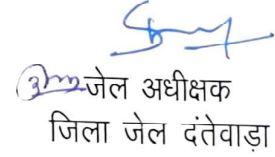 जेल अधीक्षक
जिला जेल दंतेवाड़ा